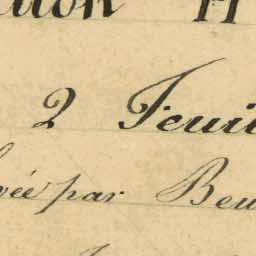 tion H
2 Feuil
vée par Beu